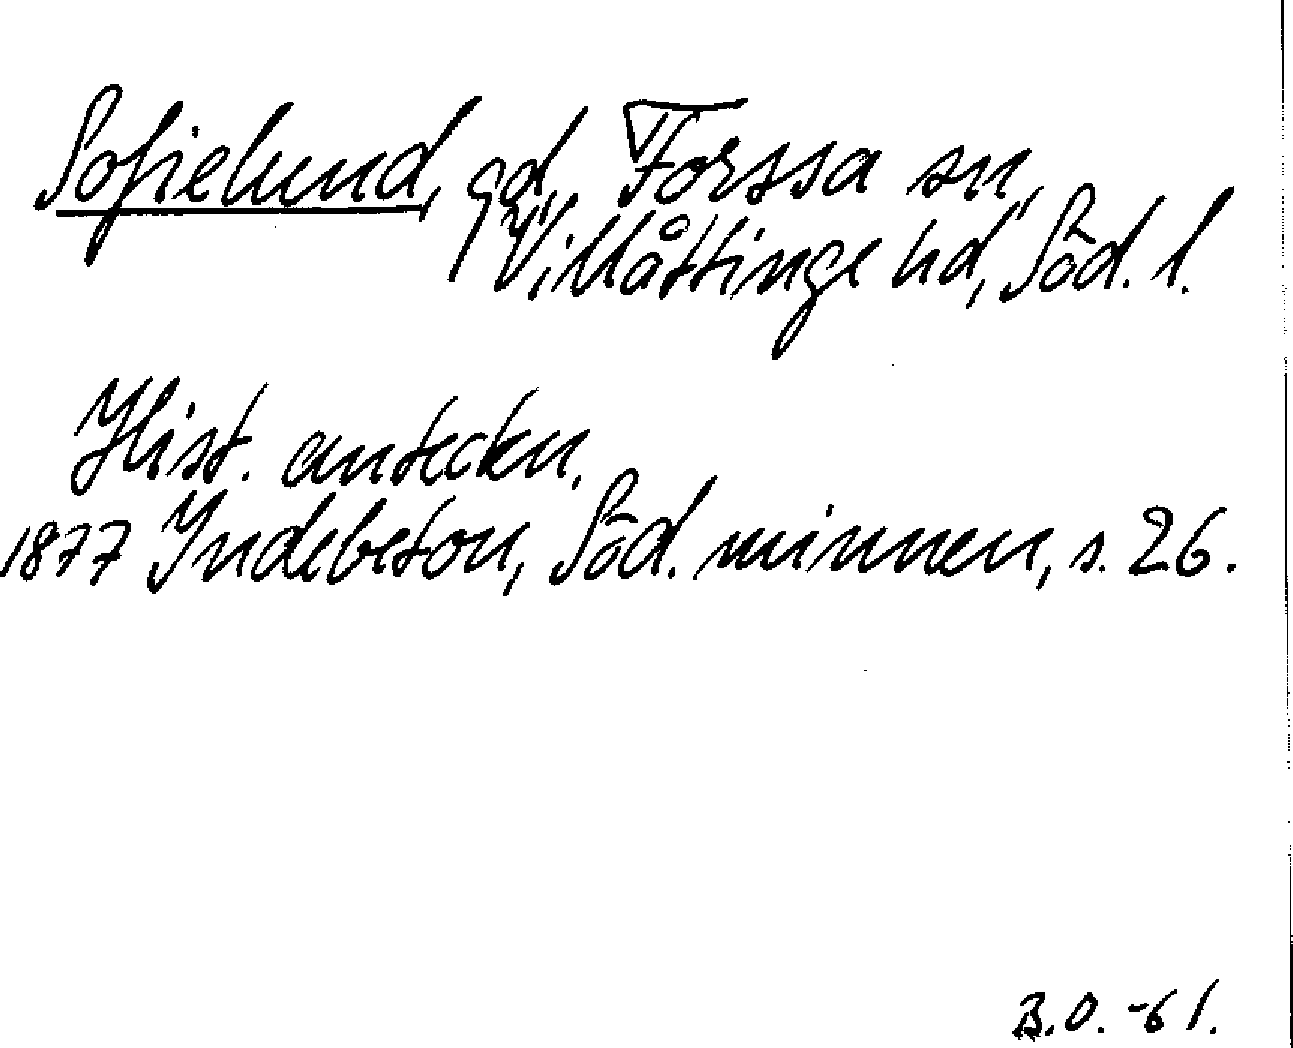 Sofielund, gd, Forssa sn,
Villåttinge hd, Söd. l.
Hist. anteckn.
1877 Indebetou, Söd. minnen, s. 26.
B.O. -61.